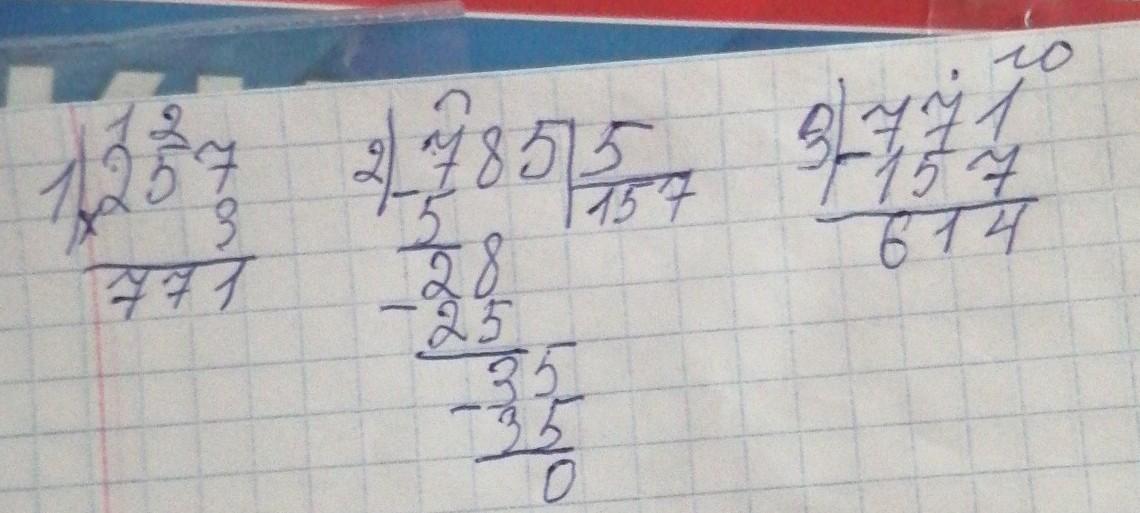 1) 12
257
× 3
771
2) 785 | 5
- 5 157
28
- 25
35
- 35
0
3) 10
- 771
157
614